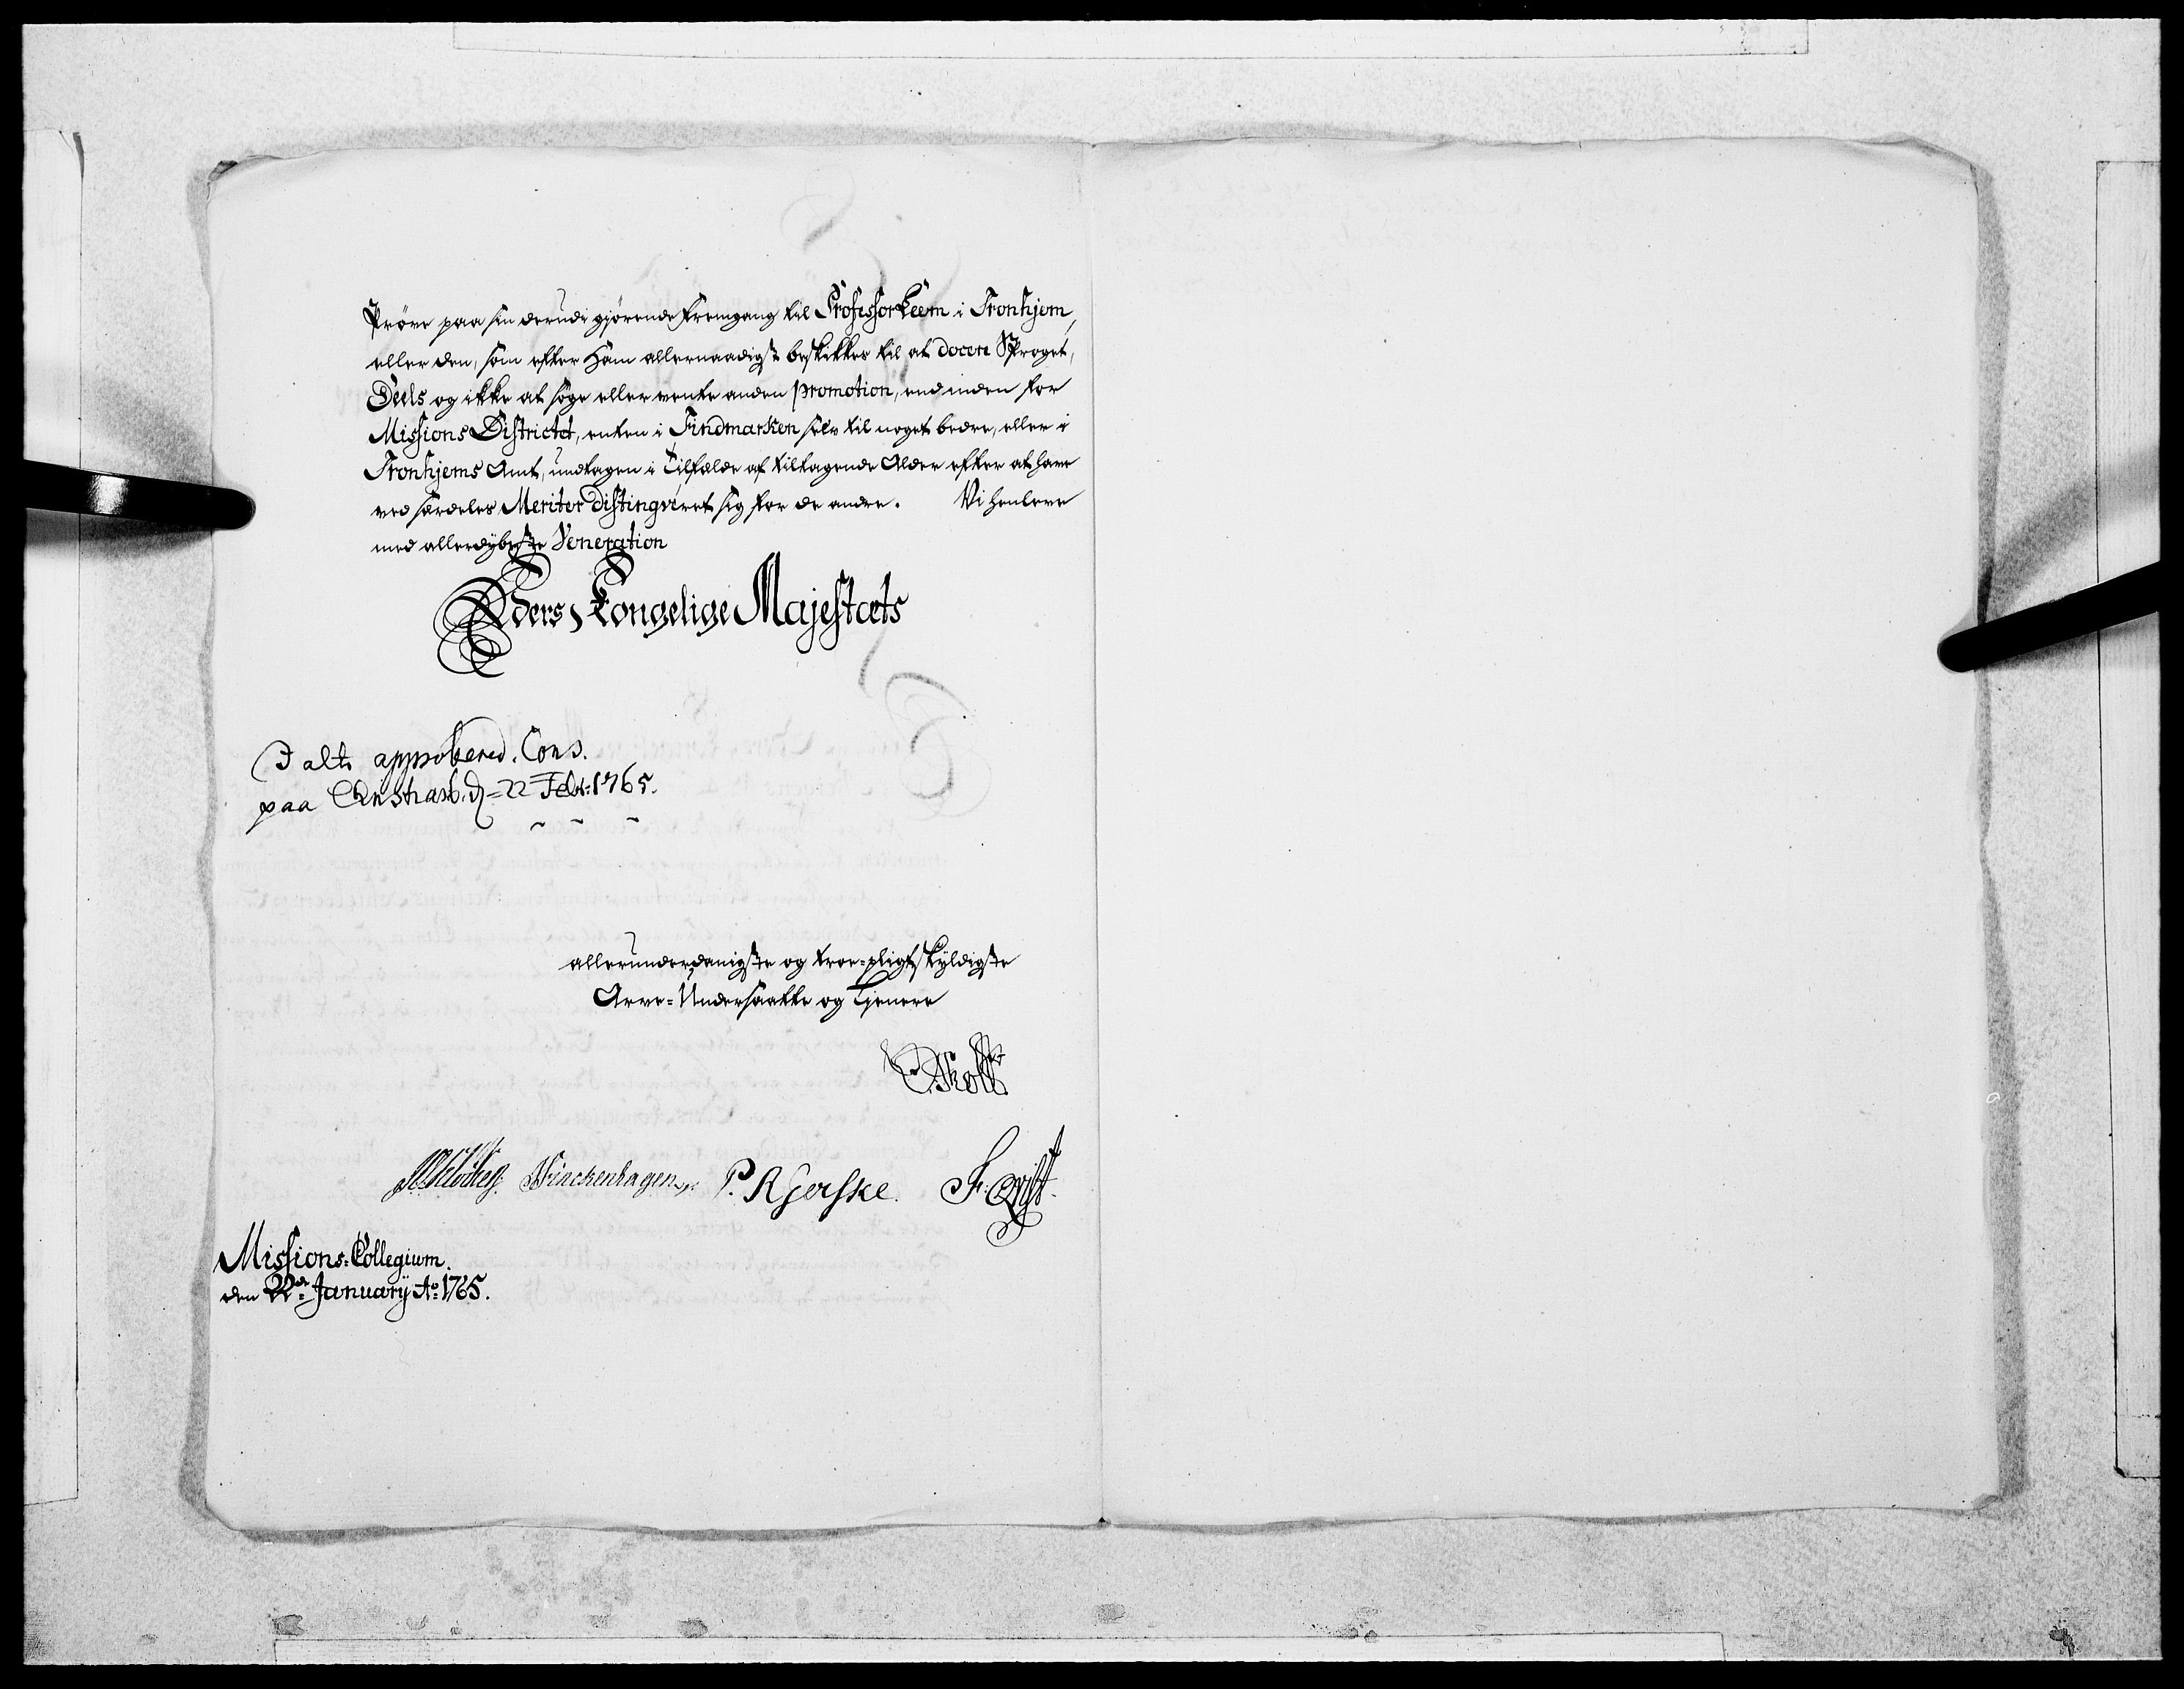 Prøve paa sin derudi giørende Fremgang til Professor Leem i Tronhjem,
eller den, som efter Ham allernaadigst beskikkes til at docere Sproget,
Deels og ikke at søge eller vente anden promotion, end inden for
Missions Districtet, enten i Findmarken selv til noget bedre, eller i
Tronhjems Amt, undtagen i Tilfælde af tiltagende Alder efter at have
ved særdeles Meriter distingveret sig for de andre. Vi henleve
med allerdybeste Veneration
Eders Kongelige Majestæts
I alt approbered. Cons.
paa Christiansb. d= 22 Febr: 1765.
allerunderdanigste og troe-pligtskyldigste
Arve-Undersaatte og Tjenere
Finckenhagen P. R Gerske. Fr: Qvist.
Missions-Collegium.
den 22de January Ao 1765.